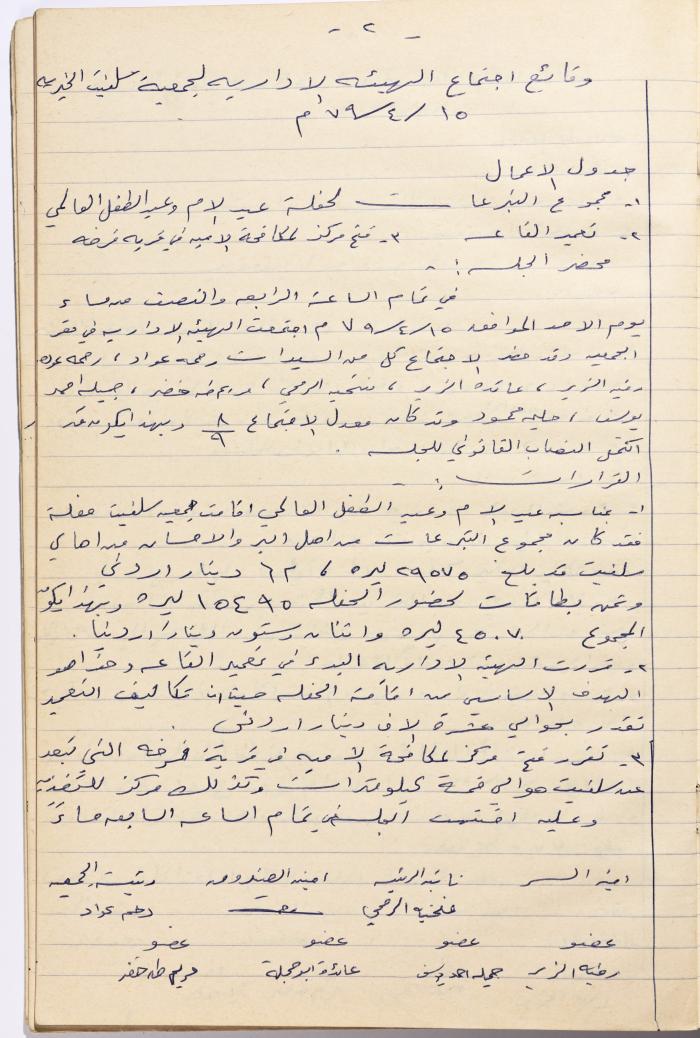 - ٢ -
وقائع اجتماع الهيئه الاداريه لجمعية سلفيت الخيريه
١٥/٤/٧٩ م
جدول الاعمال
١- مجموع التبرعات لحفلة عيد الام وعيد الطفل العالمي
٢- تعمير القاعه ٣- فتح مركز لمكافحة الاميه في قرية فرخه
محضر الجلسه :-
في تمام الساعة الرابعه والنصف من مساء
يوم الاحد الموافق ١٥/٤/٧٩ م اجتمعت الهيئه الاداريه في مقر
الجمعيه وقد حضر الاجتماع كل من السيدات رحمه عواد ، رحمه عوده
رقيه الزير ، عائده الزير ، فتحيه الرحبي ، مريم طه خضر ، جميله احمد
يوسف ، حليمه محمود وقد كان معدل الاجتماع ٨/٩ وبهذا يكون قد
اكتمل النصاب القانوني للجلسه .
القرارات :-
١- بمناسبه عيد الام وعيد الطفل العالمي اقامت جمعيه سلفيت حفلة
فقد كان مجموع التبرعات من اهل البر والاحسان من اهالي
سلفيت قد بلغ ٢٩٥٧٥ ليره ، ٦٢ دينار اردني
وثمن بطاقات لحضور الحفله ١٥٤٩٥ ليره وبهذا يكون
المجموع ٤٥٠٧٠ ليره واثنان وستون ديناراً اردنياً .
٢- قررت الهيئه الاداريه البدء في تعمير القاعه وهذا هو
الهدف الاساسي من اقامة الحفله حيث ان تكاليف التعمير
تقدر بحوالي عشرة الاف دينار اردني .
٣- تقرر فتح مركز لمكافحة الاميه في قرية فرخه التي تبعد
عن سلفيت حوالي خمسة كيلومترات وكذلك مركز للتغذيه
وعليه اختتمت الجلسه في تمام الساعه السابعه مساءً
امينه السر نائبه الرئيسه امينه الصندوق رئيسة الجمعيه
فتحيه الرحبي رحمه عواد
عضو عضو عضو عضو
رقيه الزير جميله احمد يوسف عائدة ابو حجلة مريم طه خضر